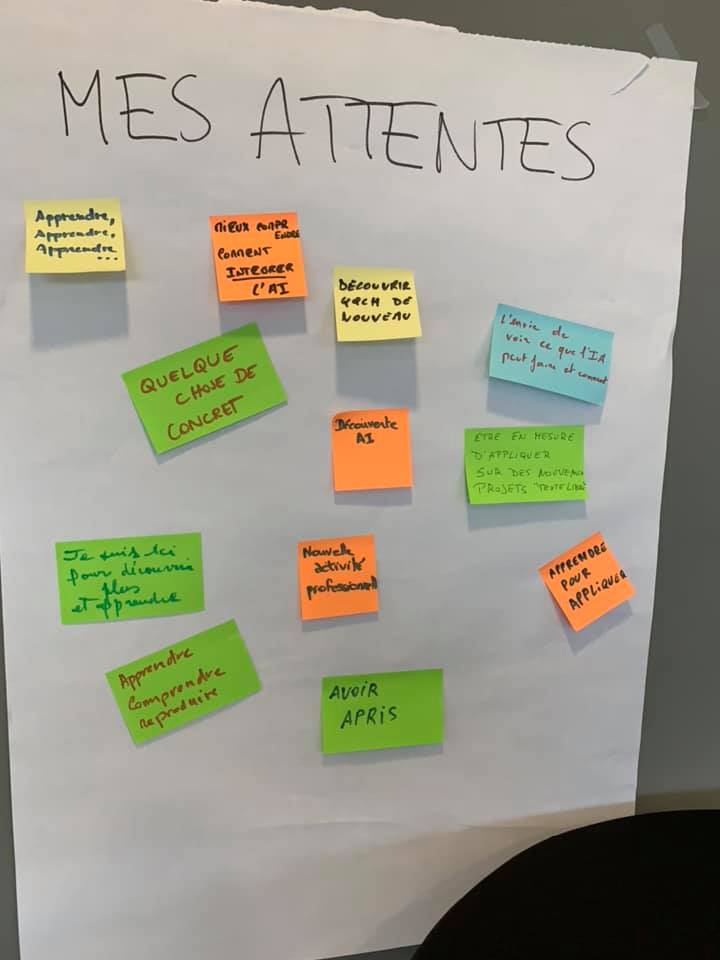 MES ATTENTES
Apprendre,
Apprendre,
Apprendre
...
MIEUX COMPR
ENDRE
COMMENT
INTEGRER
L'AI
DÉCOUVRIR
QQCH DE
NOUVEAU
L'envie de
voir ce que l'IA
peut faire et comment
QUELQUE
CHOSE DE
CONCRET
Découverte
AI
ETRE EN MESURE
D'APPLIQUER
SUR DES NOUVEAUX
PROJETS "TEXTE LIBRE"
Je suis ici
pour découvrir
plus
et apprendre
Nouvelle
activité
professionnelle
APPRENDRE
POUR
APPLIQUER
Apprendre
Comprendre
reproduire
AVOIR
APRIS